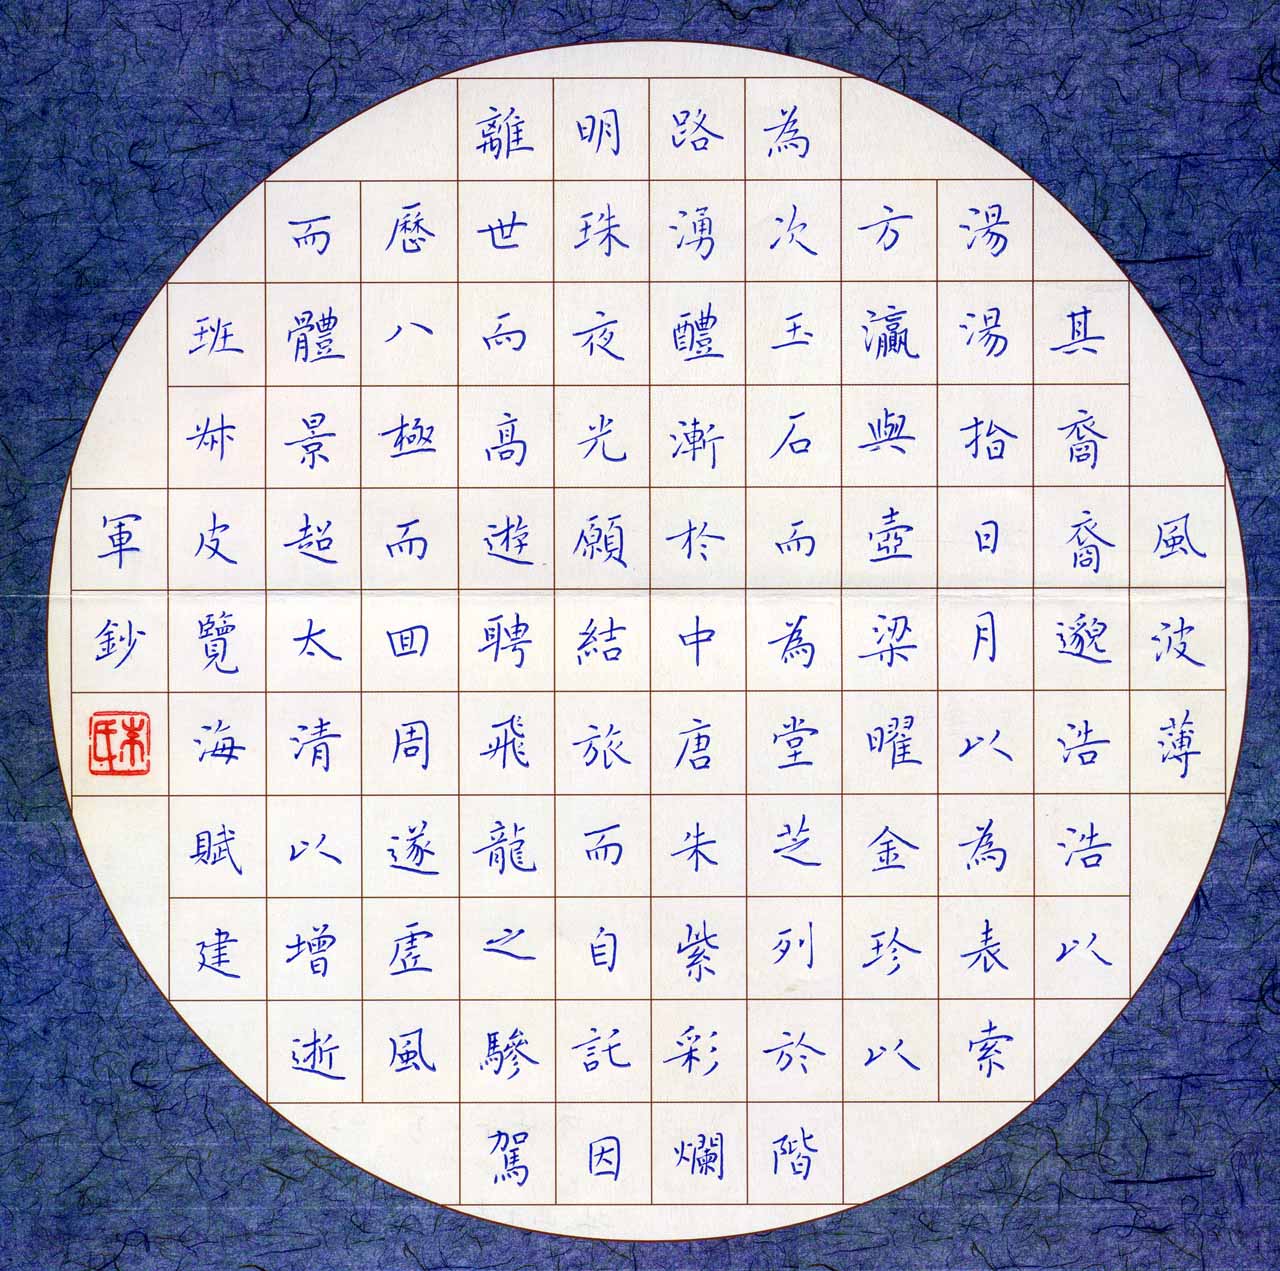 風波薄
其裔裔邈浩浩以
湯湯指日月以為表索
方瀛與壺梁曜金珍以
為次玉石而為堂芝列於階
路湧醴漸於中唐朱紫彩爛
明珠夜光願結旅而自託因
離世而高遊聘飛龍之驂駕
歷八極而回周遂虛風
而體景超太清以增逝
班叔皮覽海賦建
軍鈔